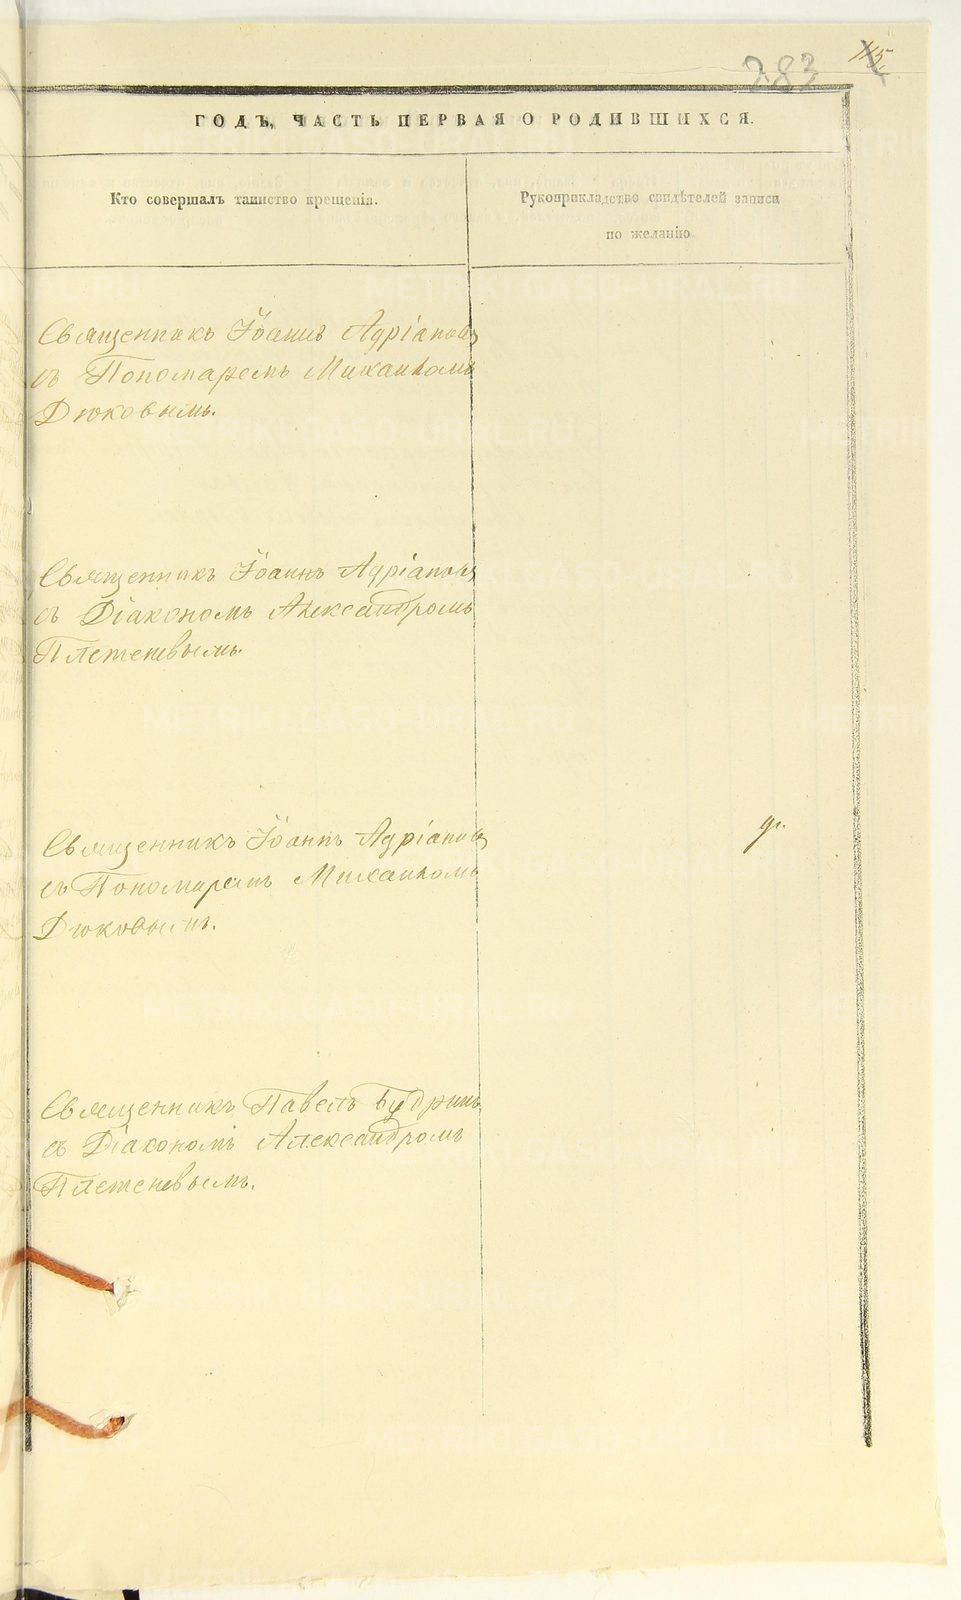 283
115.
ГОДЪ, ЧАСТЬ ПЕРВАЯ О РОДИВШИХСЯ.
Кто совершалъ таинство крещенія.
Рукоприкладство свидѣтелей записи
по желанію
Священникъ Іоаннъ Адріановъ
съ Пономаремъ Михаиломъ
Дюковымъ.
Священникъ Іоаннъ Адріановъ
съ Діакономъ Александромъ
Плетеневымъ.
Священникъ Іоаннъ Адріановъ
съ Пономаремъ Михаиломъ
Дюковымъ.
Священникъ Павелъ Будринъ
съ Діакономъ Александромъ
Плетеневымъ.
METRIKI.GASO-URAL.RU